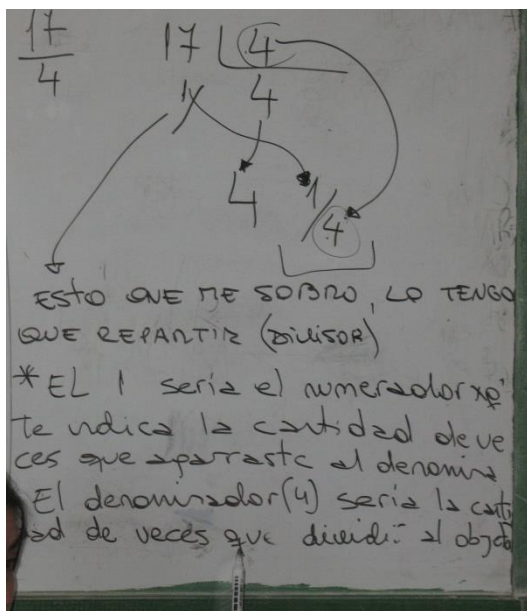 17
4
17 4
1 4
4 1/4
ESTO QUE ME SOBRÓ, LO TENGO
QUE REPARTIR (DIVISOR)
* EL 1 sería el numerador xq'
te indica la cantidad de ve
ces que al denomina
El denominador (4) sería la canti
dad de veces que dividi- al objeto